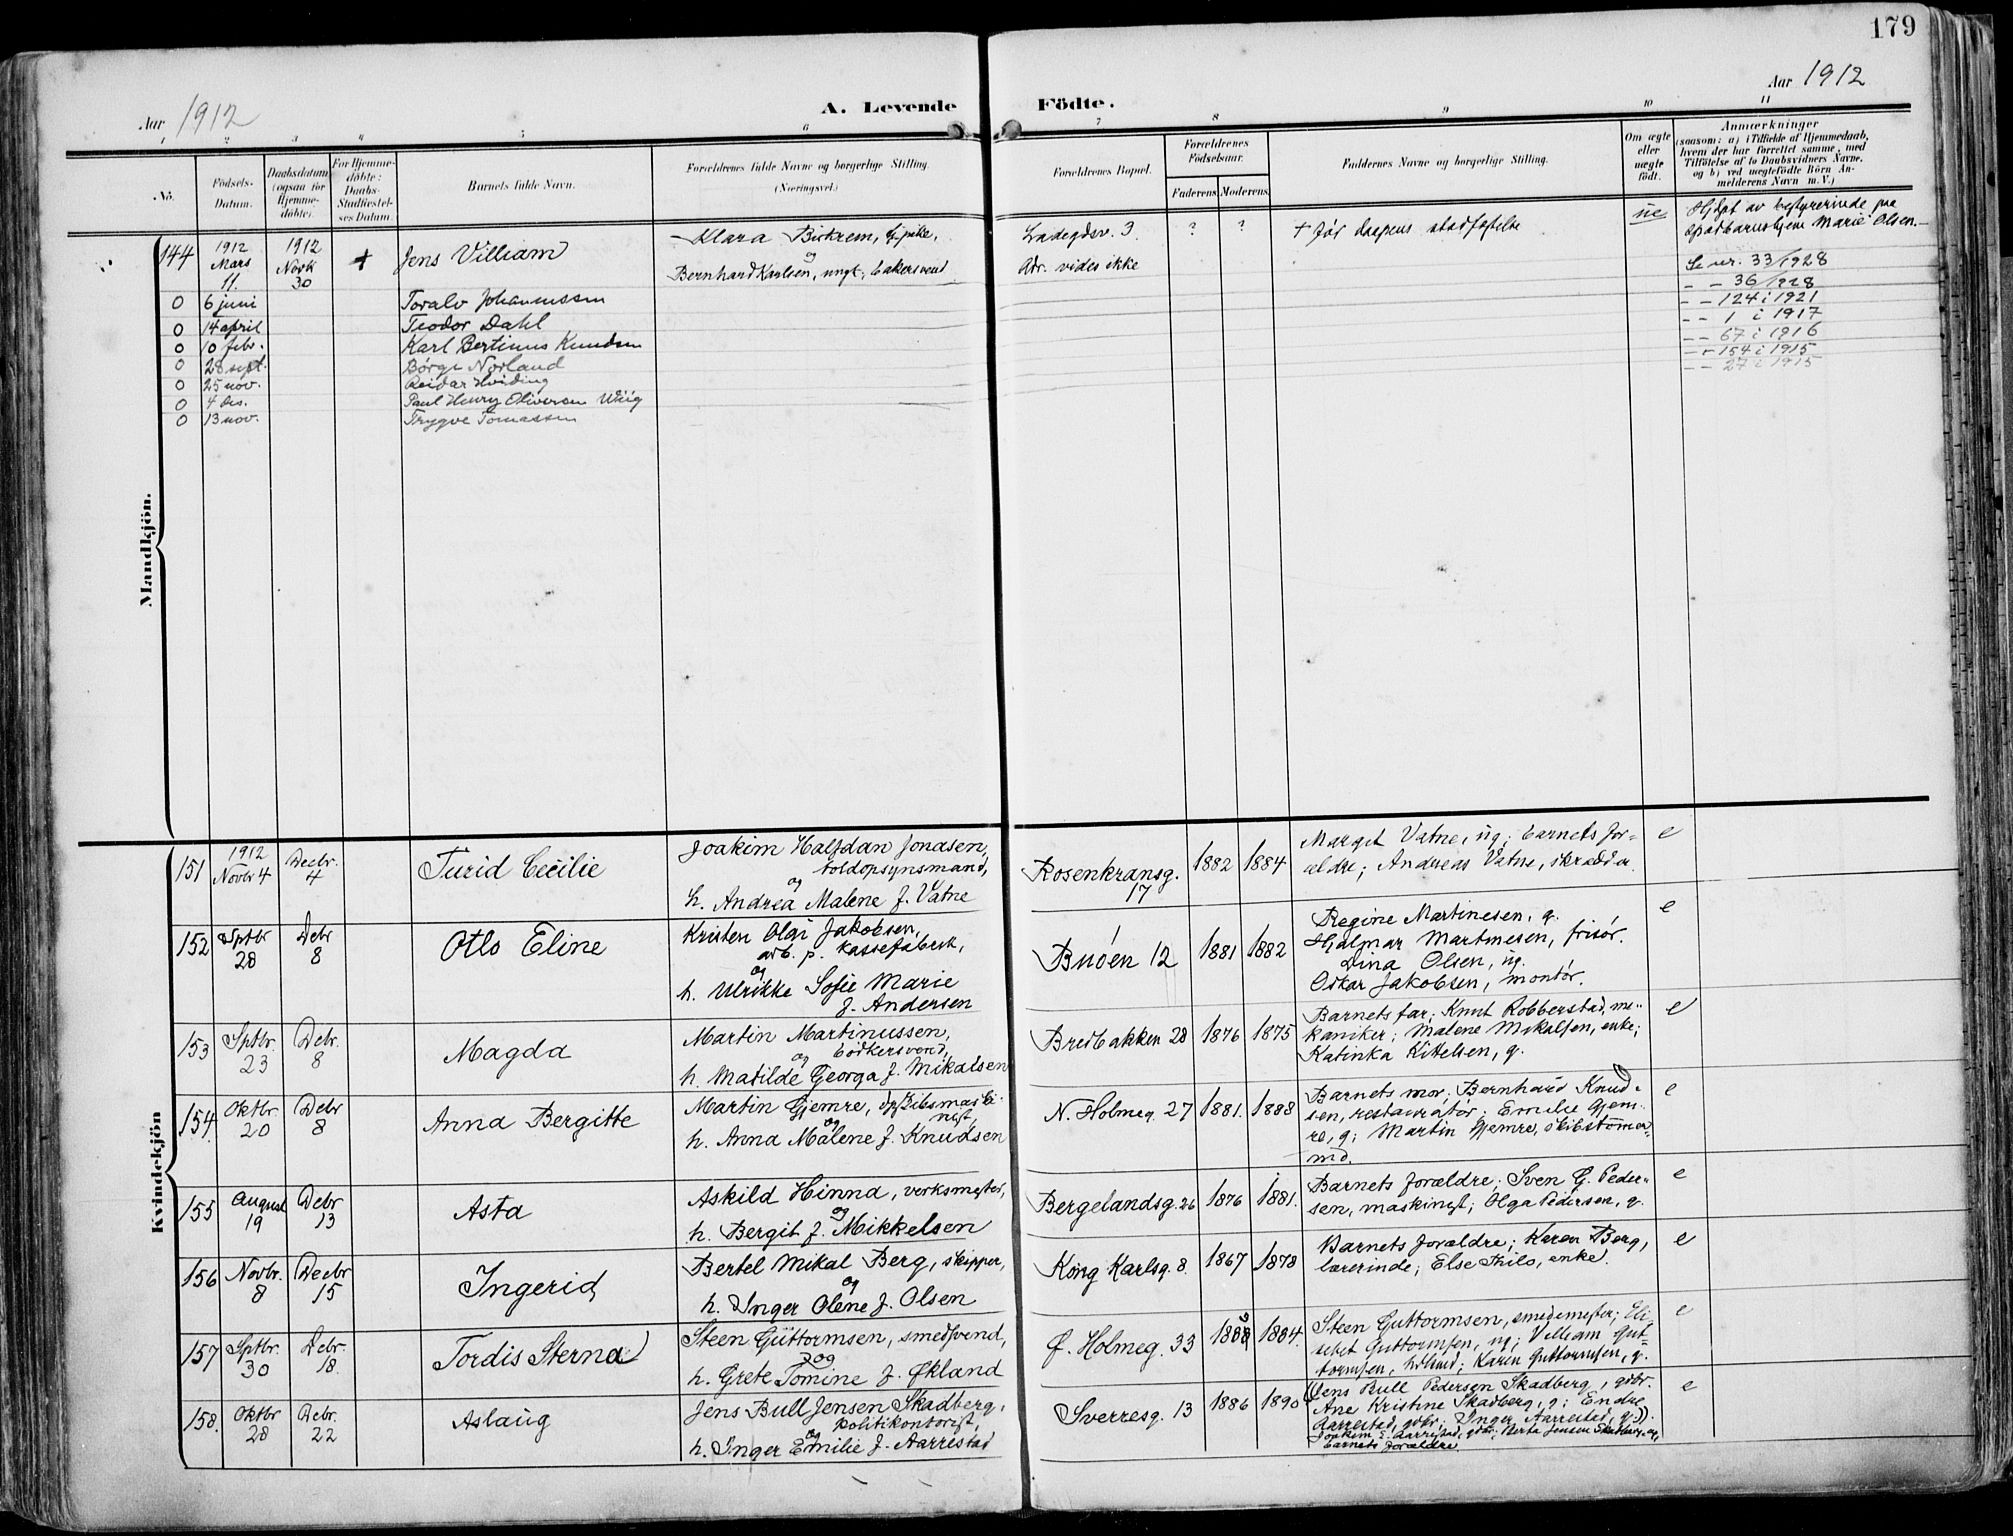 179
Aar 1912
A. Levende Födte.
Aar 1912
1 2 3 4 5 6 7 8 9 10 11
No.
Födsels-
Datum.
Daabsdatum
(ogsaa for
Hjemme-
döbte).
For Hjemme-
döbte:
Daabs-
Stadfæstel-
ses Datum.
Barnets fulde Navn.
Forældrenes fulde Navne og borgerlige Stilling.
(Næringsvei.)
Forældrenes Bopæl.
Forældrenes
Födselsaar.
Faderens. Moderens.
Faddernes Navne og borgerlige Stilling.
Om ægte
eller
uægte
født.
Anmærkninger
(saasom: a) i Tilfælde af Hjemmedaab,
hvem der har forrettet samme, med
Tilföielse af to Daabsvidners Navne,
og b) ved uægtefödte Börn An-
melderens Navn m. V.)
Mandkjön.
144
1912
Mars
11.
1912
Novbr
30
+
Jens Villiam
Klara Birkrem, tj.pike,
og
Bernhard Karlsen, ungk., bakersvend
Ladegdsv. 3.
Adr. vides ikke
? ?
+ før daapens stadfæstelse
ue
Hjdpt av bestyrerinde paa
spædbarnshjem Marie Olsen.
0 6 juni Toralv Johannessen Se nr. 33/1928
0 14 april Teodor Dahl - - 36/1928
0 10 febr. Karl Bertinus Knudsen - - 124 i 1921
0 28 sept. Børge Norland - - 1 i 1917
0 25 nov. Reidar Hviding - - 67 i 1916
0 4 des. Paul Henry Oliversen Wiig - - 154 i 1915
0 13 nov. Trygve Tomassen - - 27 i 1915
Kvindekjön
151
1912
Novbr 4
Decbr.
4
Turid Cecilie
Joakim Halfdan Jonasen,
toldopsynsmand,
og
h. Andrea Malene f. Vatne
Rosenkransg.
17
1882 1884
Marget Vatne, ug.; barnets for-
ældre; Andreas Vatne, skrædder.
e
152
Sptbr
28
Debr
8
Otlo Eline
Kristen Olai Jakobsen,
arb. p. kassefabrik,
og
h. Ulrikke Sofie Marie
f. Andersen
Buøen 12
1881 1882
Regine Martinesen, g.
Hjalmar Martinesen, frisør.
Dina Olsen, ug.
Oskar Jakobsen, montør.
e
153
Sptbr.
23
Debr.
8
Magda
Martin Martinussen,
bødkersvend,
og
h. Matilde Georga f. Mikalsen
Bredbakken 28
1876 1875
Barnets far; Knut Robberstad, me-
kaniker; Malene Mikalsen, enke;
Katinka Kittelsen, g.
e
154
Oktbr.
20
Debr
8
Anna Bergitte
Martin Gjemre, dpskibsmaski-
nist,
og
h. Anna Malene f. Knudsen
N. Holmeg. 27
1881. 1888
Barnets mor; Bernhard Knud-
sen, restauratør; Emilie Gjem-
re, g; Martin Gjemre, skibstømer-
md.
e
155
August
19
Debr
13
Asta
Askild Hinna, verksmester,
og
h. Bergit f. Mikkelsen
Bergelandsg. 26
1876 1881.
Barnets forældre; Sven G. Peder-
sen, maskinist; Olga Pedersen, g.
e
156
Novbr.
8
Decbr
15
Ingerid
Bertel Mikal Berg, skipper,
og
h. Inger Olene f. Olsen
Kong Karlsg. 8.
1867 1878
Barnets forældre; Karen Berg,
lærerinde; Else Thilo, enke.
e
157
Sptbr.
30
Debr.
18.
Tordis Sterna
Steen Guttormsen, smedsvend,
og
h. Grete Tomine f. Økland
Ø. Holmeg. 33
1884.
Steen Guttormsen, smedemester; Eli-
sebet Guttormsen, ug; Villiam Gut-
tormsen, Karen Guttormsen, g.
e
158.
Oktbr
28
Debr.
22
Aslaug
Jens Bull Jensen Skadberg,
politikontorist,
og
h. Inger Emilie f. Aarrestad
Sverresg. 13
1886 1890
(Jens Bull Pedersen Skadberg, gdbr.
Ane Kristine Skadberg, g; Endre
Aarrestad, gdbr; Inger Aarrestad, g.)).
Joakim E. Aarrestad, gdbr; Berta Jensen Skadberg, og
barnets forældre
e